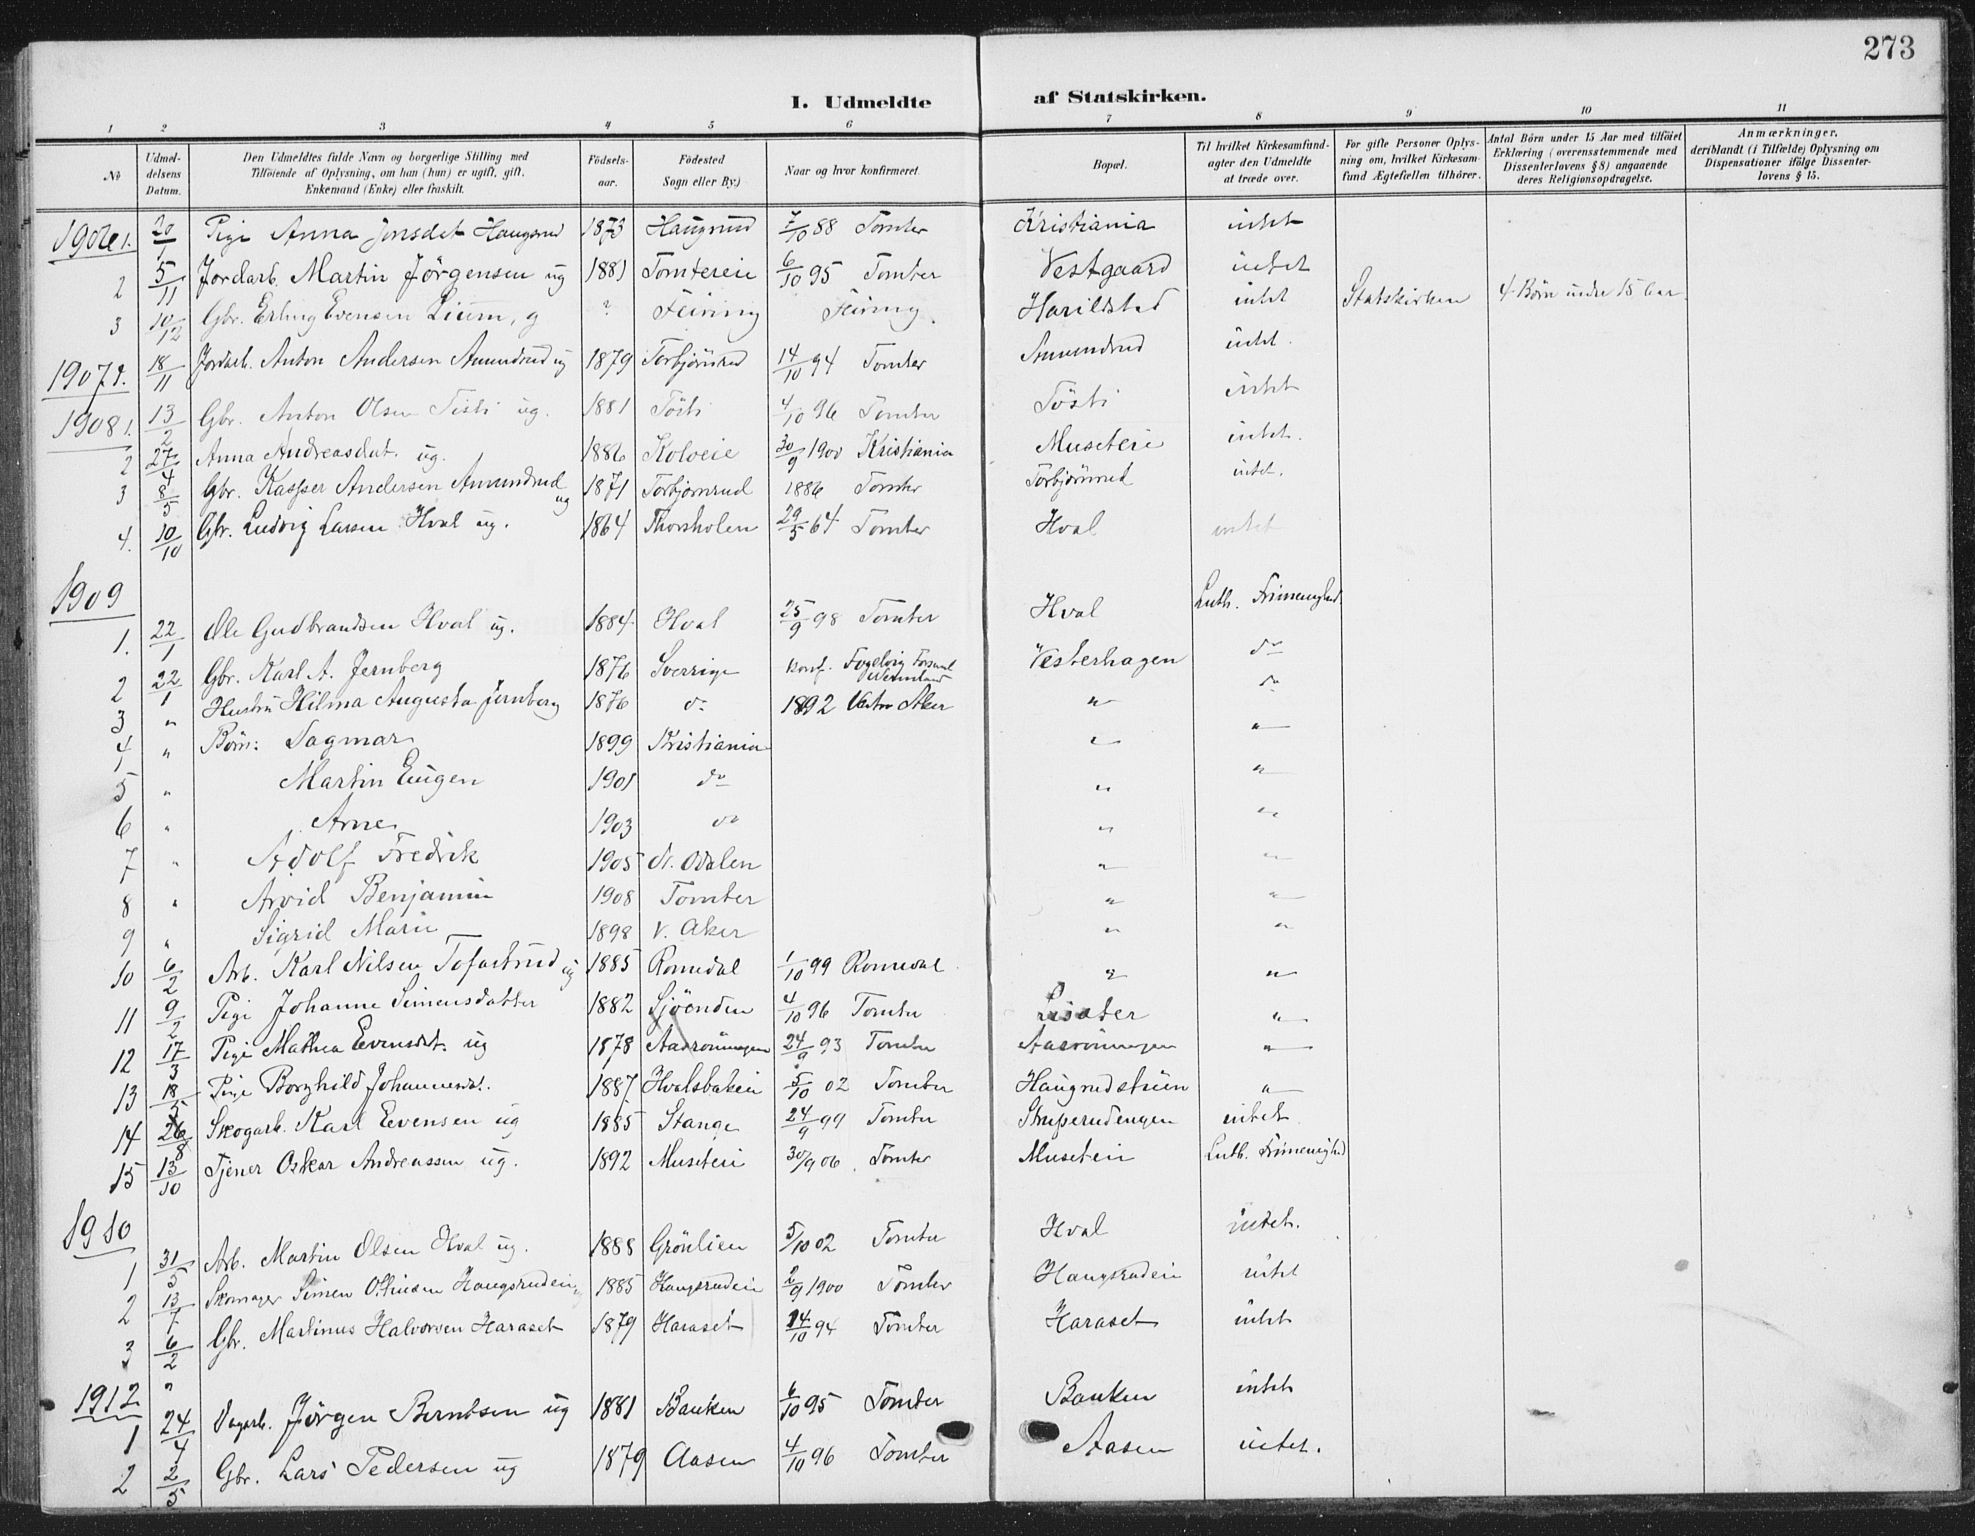 273
I. Udmeldte af Statskirken.
1 2 3 4 5 6 7 8 9 10 11
№ Udmeldelsens Datum. Den Udmeldtes fulde Navn og borgerlige Stilling med Tilføiende af Oplysning, om han (hun) er ugift, gift, Enkemand (Enke) eller fraskilt. Fødselsaar. Fødested Sogn eller By.) Naar og hvor konfirmeret. Bopæl. Til hvilket Kirkesamfund agter den Udmeldte at træde over. For gifte Personer Oplysning om, hvilket Kirkesamfund Ægtefællen tilhører. Antal Børn under 15 Aar med tilføiet Erklæring (overensstemmende med Dissenterlovens § 8) angaaende deres Religionsopdragelse. Anmærkninger, deriblandt (i Tilfælde) Oplysning om Dispensationer ifølge Dissenterlovens § 15.
1. 20/1 Pige Anna Jonsdat Haugsrud 1873 Haugsrud 7/10 88 Tomter Kristiania intet
2 5/11 Jordarb. Martin Jørgensen ug 1881 Tomtereie 6/10 95 Tomter Vestgaard intet
3 10/12 Gbr. Erling Evensen g ? Feiring Feiring. Harildstad intet Statskirken 4 Børn under 15 Aar.
1907 1. 18/11 Jordarb. Anton Andersen Amundrud ug 1879 Torbjørnrud 14/10 94 Tomter Amundrud intet.
1908 1. 13/2 Gbr. Anton Olsen Tøsti ug. 1881 Tøsti 4/10 96 Tomter Tøsti intet
2 27/4 Anna Andreasdat. ug. 1886 Koloeie 30/9 1900 Kristiania Museteie intet.
3 8/5 Gbr. Kasper Andersen Amundrud ug 1871 Torbjørnrud 1886 Tomter Torbjørnrud intet.
4. 10/10 Gbr. Ludvig Larsen Hval ug. 1864 Thorsholen 29/5 64 Tomter Hval intet
1909
1. 22/1 Ole Gudbrandsen Hval ug. 1884 Hval 25/9 98 Tomter Hval Luth. Frimenighed
2 22/1 Gbr. Karl A. Jernberg 1876 Sverrige Konf. Vesterhagen do
3 " Hustru Hilma Augusta Jernberg 1876 do 1892 Vestre Aker " do
4 " Børn: Dagmar 1899 Kristiania " "
5 " Martin Eugen 1901 do " "
6 " Arne 1903 do " "
7 " Adolf Fredrik 1905 N. Odalen " "
8 " Arvid Benjamin 1908 Tomter " "
9 " Sigrid Marie 1898 V. Aker " "
10 6/2 Arb. Karl Nilsen Tofastrud ug 1885 Romedal 1/10 99 Romedal. " "
11 9/2 Pige Johanne Simensdatter 1882 Sjøenden 4/10 96 Tomter "
12 17/3 Pige Mathea Evensdt. ug 1878 Aasrønningen 24/9 93 Tomter Aasrønningen "
13 18/5 Pige Borghild Johannesdt. 1887 Hvalsbakein 5/10 02 Tomter Haugrudstuen "
14 26/8 Skogarb. Karl Evensen ug 1885 Stange 24/9 99 Tomter Struperudengen intet
15 13/10 Tjener Oskar Andreassen ug. 1892 Museteie 30/9 06. Tomter Museteie Luth. Frimenighed
1910
1 31/5 Arb. Martin Olsen Hval ug. 1888 Grønlien 5/10 02 Tomter Hval intet.
2 13/7 Skomager Simen Haugsrudeie 1885 Haugsrudeie 2/9 1900 Tomter Haugsrudeie intet
3 6/2 Gbr. Martinus Halvorsen Haraset 1879 Haraset 14/10 94 Tomter Haraset intet
1912
1 24/4 Jørgen Berntsen ug 1881 Bauken 6/10 95 Tomter Bauken intet
2 2/5 Gbr. Lars Pedersen ug 1879 Aasen 4/10 96 Tomter Aasen intet.